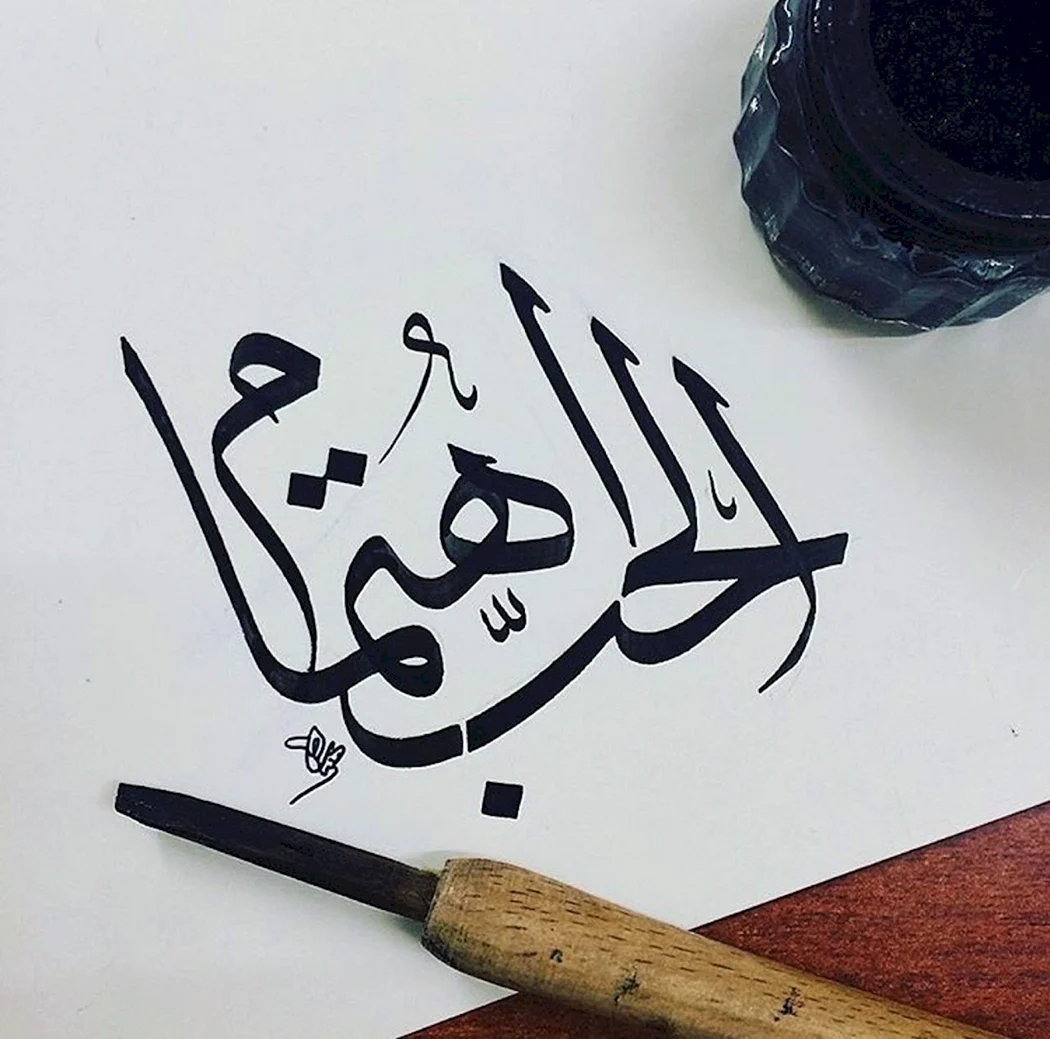 الحبّ اهتمام